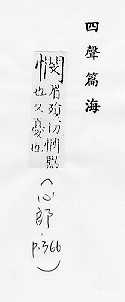 四聲篇海
憫眉殞切憫默
也又憂也
(心部.p.366)